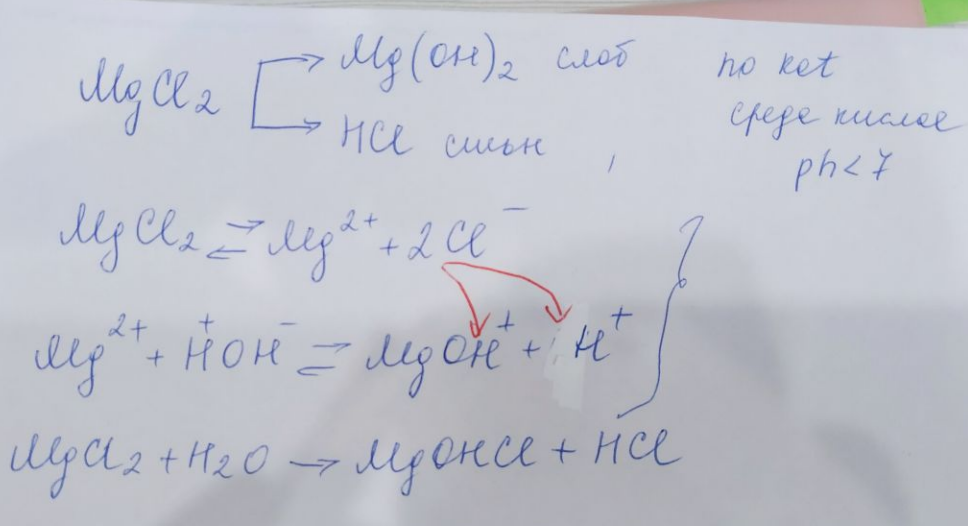 MgCl₂ → Mg(OH)₂ слаб по kat
→ HCl сильн , среда кислая
ph < 7
MgCl₂ ⇄ Mg²⁺ + 2Cl⁻
Mg²⁺ + H⁺OH⁻ ⇄ MgOH⁺ + H⁺
MgCl₂ + H₂O → MgOHCl + HCl